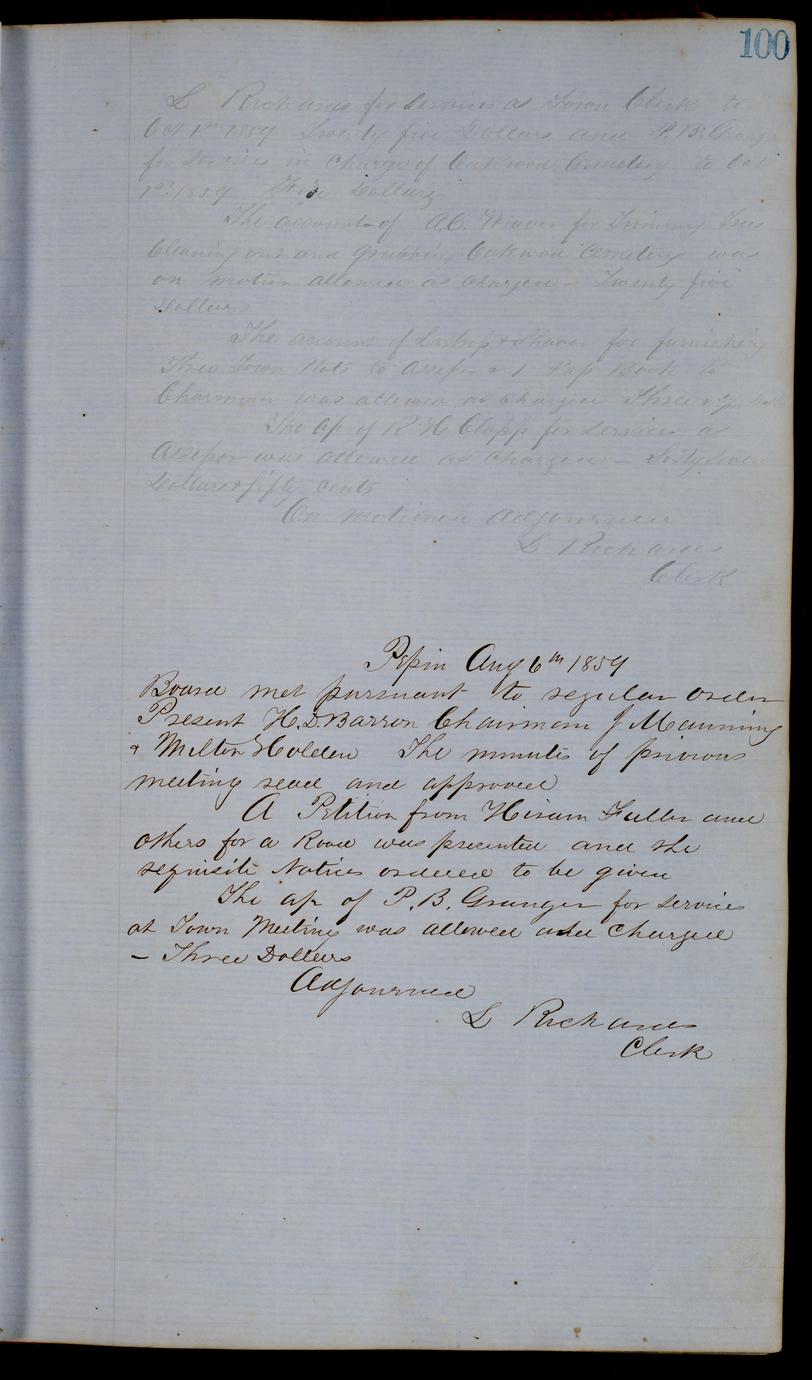 100
L Richards for Services as Town Clerk to
Oct 1st 1859 Twenty five Dollars and P. B. Granger
for Services in Charge of Oakwood Cemetery to Oct
1st 1859 Five Dollars
The account of A.C. for Triming Trees
Cleaning out and grubbing Oakwood Cemetery was
on motion allowed as charged – Twenty five
Dollars
The account of & Shaver for furnishing
Three Town Plats to Assessor & 1 Book to
Chairman was allowed as charged Three
The a/c of R H Clapp for Services as
Assessor was allowed as charged – Sixty Seven
Dollars & fifty cents
On motioned Adjourned
L Richards
Clerk
Pepin Aug 6th 1859
Board met pursuant to regular order
Present H. D. Barron Chairman J Manning
& Milton Holden The minutes of previous
meeting read and approved
A Petition from Hiram Fuller and
others for a Road was presented and the
requisite Notices ordered to be given
The a/c of P. B. Granger for services
at Town Meeting was allowed as charged
– Three Dollars
Adjourned
L Richards
Clerk